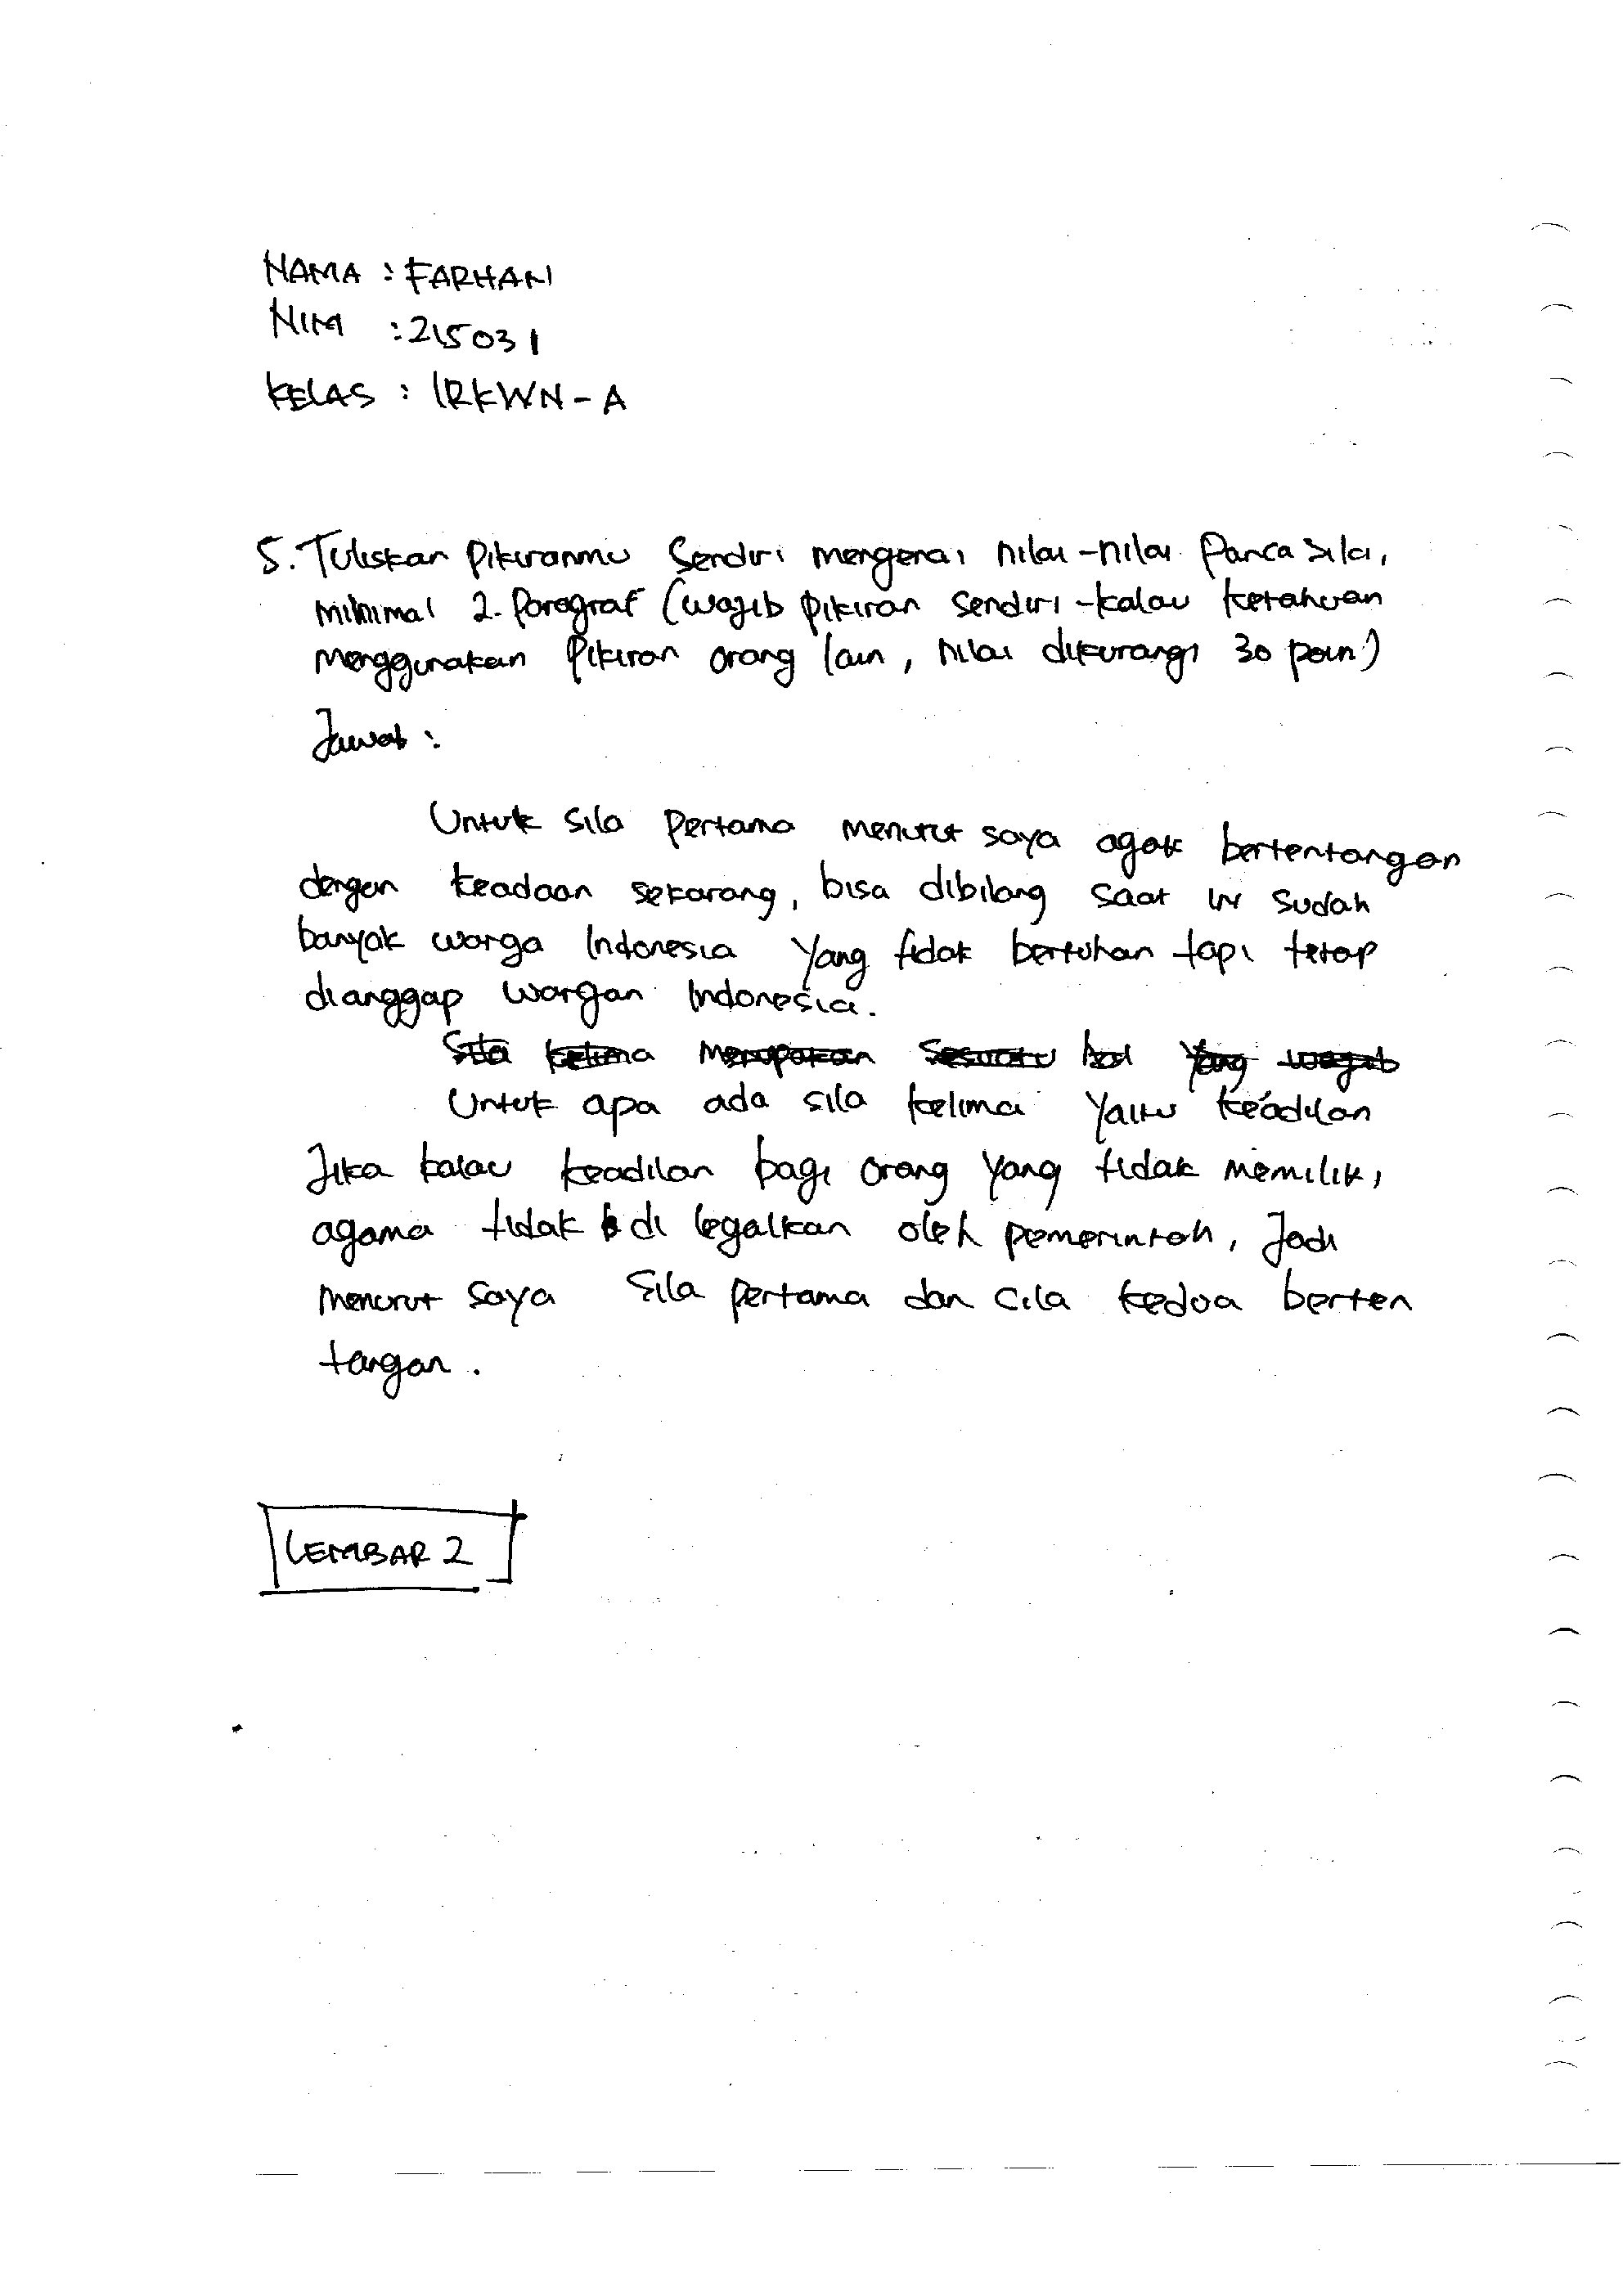 NAMA : FARHAN
NIM : 215031
KELAS : 1RKWN-A
5. Tuliskan Pikiranmu Sendiri mengenai nilai-nilai Pancasila,
minimal 2. Paragraf (wajib pikiran sendiri-kalau ketahuan
menggunakan Pikiran orang lain, nilai dikurangi 30 poin)
Jawab :
Untuk sila pertama menurut saya agak bertentangan
dengan keadaan sekarang, bisa dibilang saat ini sudah
banyak warga Indonesia yang tidak bertuhan tapi tetap
dianggap wargan Indonesia.
Sila kelima merupakan sesuatu hal yang wajib
Untuk apa ada sila kelima yaitu keadilan
Jika kalau keadilan bagi orang yang tidak memiliki
agama tidak di legalkan oleh pemerintah, Jadi
menurut saya sila pertama dan sila kedua berten
tangan.
LEMBAR 2